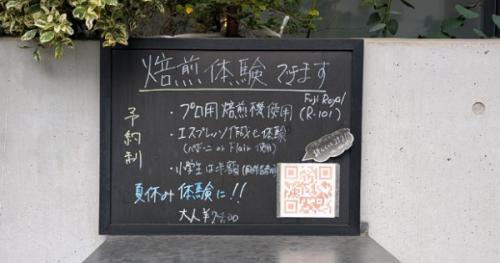 焙煎体験できます
予約制
・プロ用焙煎機使用 (Fuji Royal R-101)
・エスプレッソ作成も体験
Flair 使用)
・小学生は半額
夏休み体験に!!
大人¥